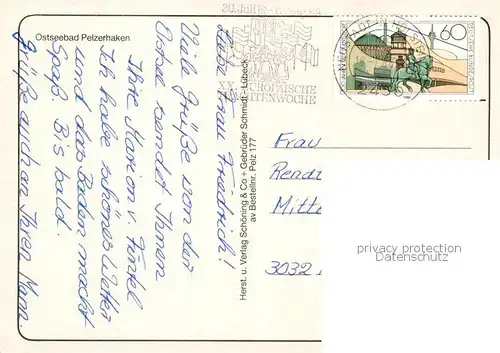 Ostseebad Pelzerhaken
Liebe Frau Friedrich!
Viele Grüße von der
Ostsee sendet Ihnen
Ihre Marion v. Fintel
Ich habe schönes Wetter
und das Baden macht
Spaß. Bis bald.
Grüße auch an Ihren Mann.
Herst. u. Verlag Schöning & Co + Gebrüder Schmidt · Lübeck
av Bestellnr. Pelz 177
XX. EUROPÄISCHE
60
DEUTSCHE BUNDESPOST
Frau
Mitte
3032
privacy protection
Datenschutz